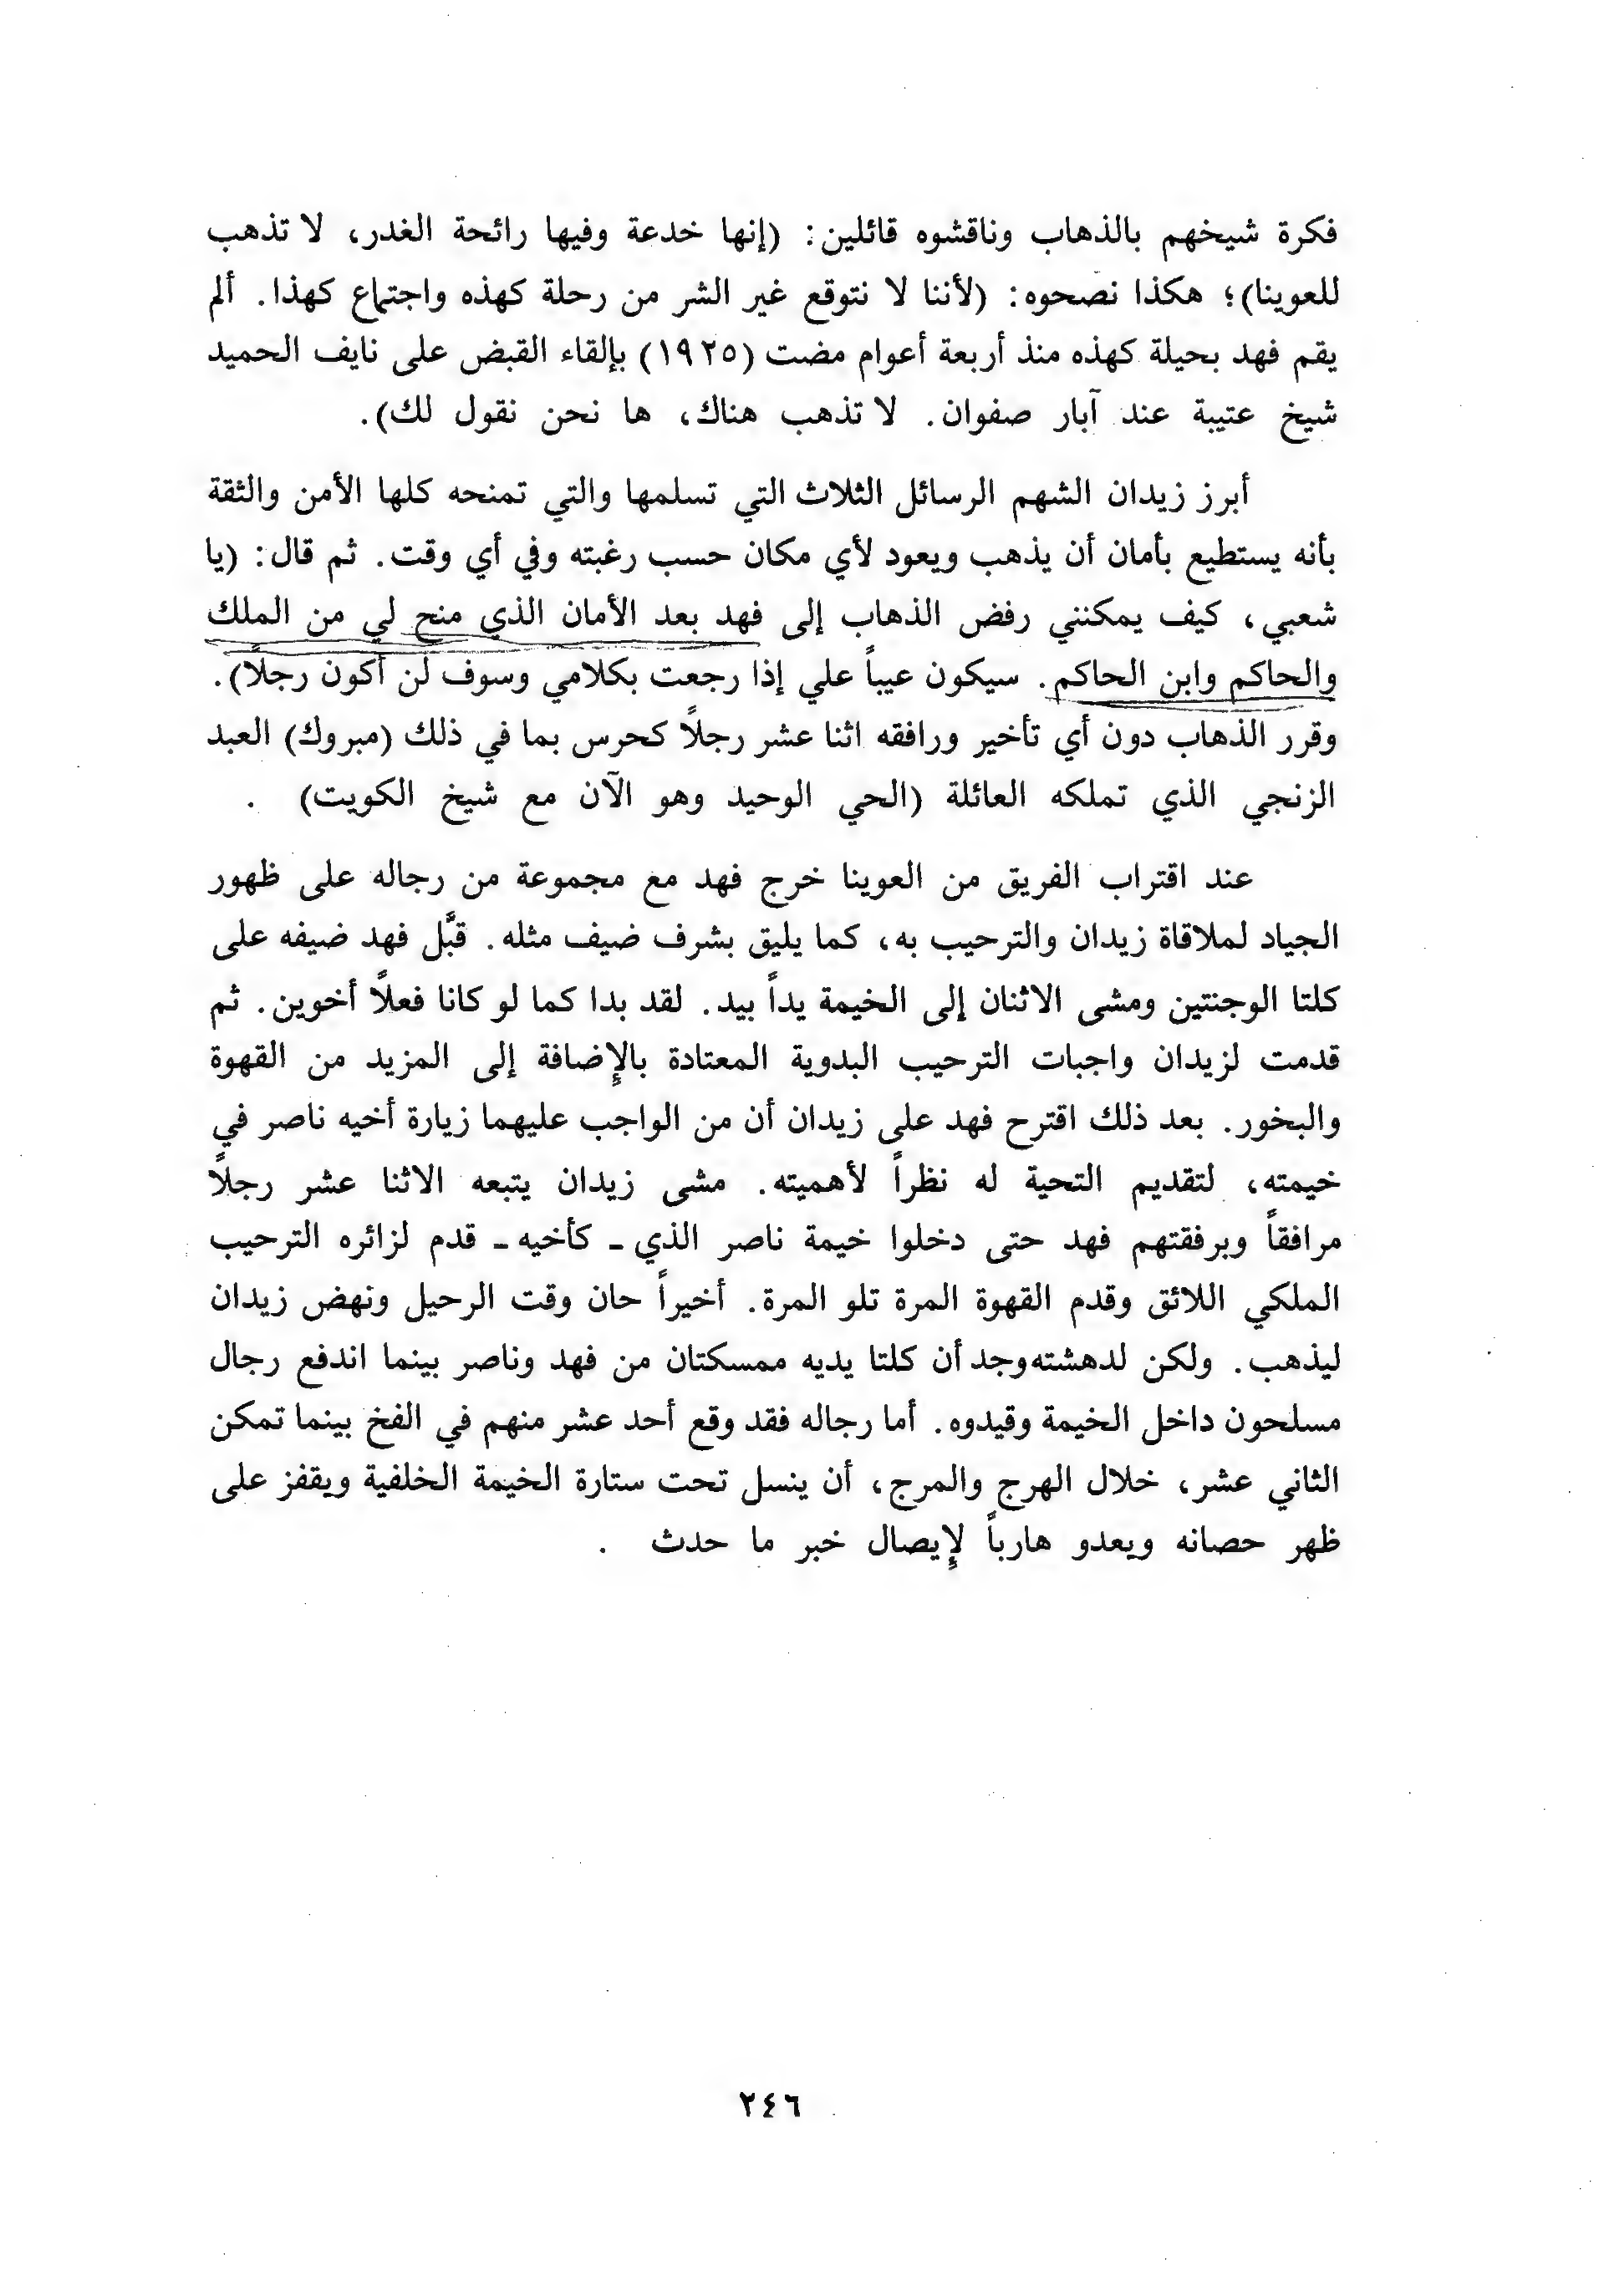 فكرة شيخهم بالذهاب وناقشوه قائلين: (إنها خدعة وفيها رائحة الغدر، لا تذهب
للعوينا)؛ هكذا نصحوه: (لأننا لا نتوقع غير الشر من رحلة كهذه واجتماع كهذا. ألم
يقم فهد بحيلة كهذه منذ أربعة أعوام مضت (١٩٢٥) بإلقاء القبض على نايف الحميد
شيخ عتيبة عند آبار صفوان. لا تذهب هناك، ها نحن نقول لك).
أبرز زيدان الشهم الرسائل الثلاث التي تسلمها والتي تمنحه كلها الأمن والثقة
بأنه يستطيع بأمان أن يذهب ويعود لأي مكان حسب رغبته وفي أي وقت. ثم قال: (يا
شعبي، كيف يمكنني رفض الذهاب إلى فهد بعد الأمان الذي منح لي من الملك
والحاكم وابن الحاكم. سيكون عيباً علي إذا رجعت بكلامي وسوف لن أكون رجلاً).
وقرر الذهاب دون أي تأخير ورافقه اثنا عشر رجلاً كحرس بما في ذلك (مبروك) العبد
الزنجي الذي تملكه العائلة (الحي الوحيد وهو الآن مع شيخ الكويت) .
عند اقتراب الفريق من العوينا خرج فهد مع مجموعة من رجاله على ظهور
الجياد لملاقاة زيدان والترحيب به، كما يليق بشرف ضيف مثله. قبَّل فهد ضيفه على
كلتا الوجنتين ومشى الاثنان إلى الخيمة يداً بيد. لقد بدا كما لو كانا فعلاً أخوين. ثم
قدمت لزيدان واجبات الترحيب البدوية المعتادة بالإضافة إلى المزيد من القهوة
والبخور. بعد ذلك اقترح فهد على زيدان أن من الواجب عليهما زيارة أخيه ناصر في
خيمته، لتقديم التحية له نظراً لأهميته. مشى زيدان يتبعه الاثنا عشر رجلاً
مرافقاً وبرفقتهم فهد حتى دخلوا خيمة ناصر الذي ـ كأخيه ـ قدم لزائره الترحيب
الملكي اللائق وقدم القهوة المرة تلو المرة. أخيراً حان وقت الرحيل ونهض زيدان
ليذهب. ولكن لدهشته وجد أن كلتا يديه ممسكتان من فهد وناصر بينما اندفع رجال
مسلحون داخل الخيمة وقيدوه. أما رجاله فقد وقع أحد عشر منهم في الفخ بينما تمكن
الثاني عشر، خلال الهرج والمرج، أن ينسل تحت ستارة الخيمة الخلفية ويقفز على
ظهر حصانه ويعدو هارباً لإيصال خبر ما حدث .
٢٤٦